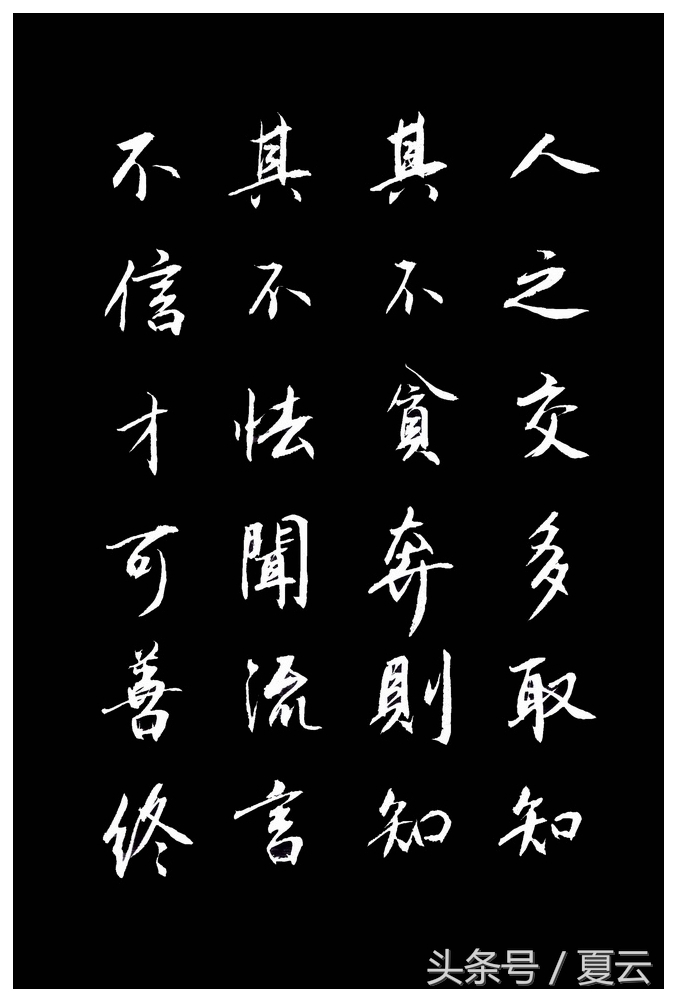 人之交多取知
其不貧奔則知
其不怯聞流言
不信才可善終
头条号 / 夏云